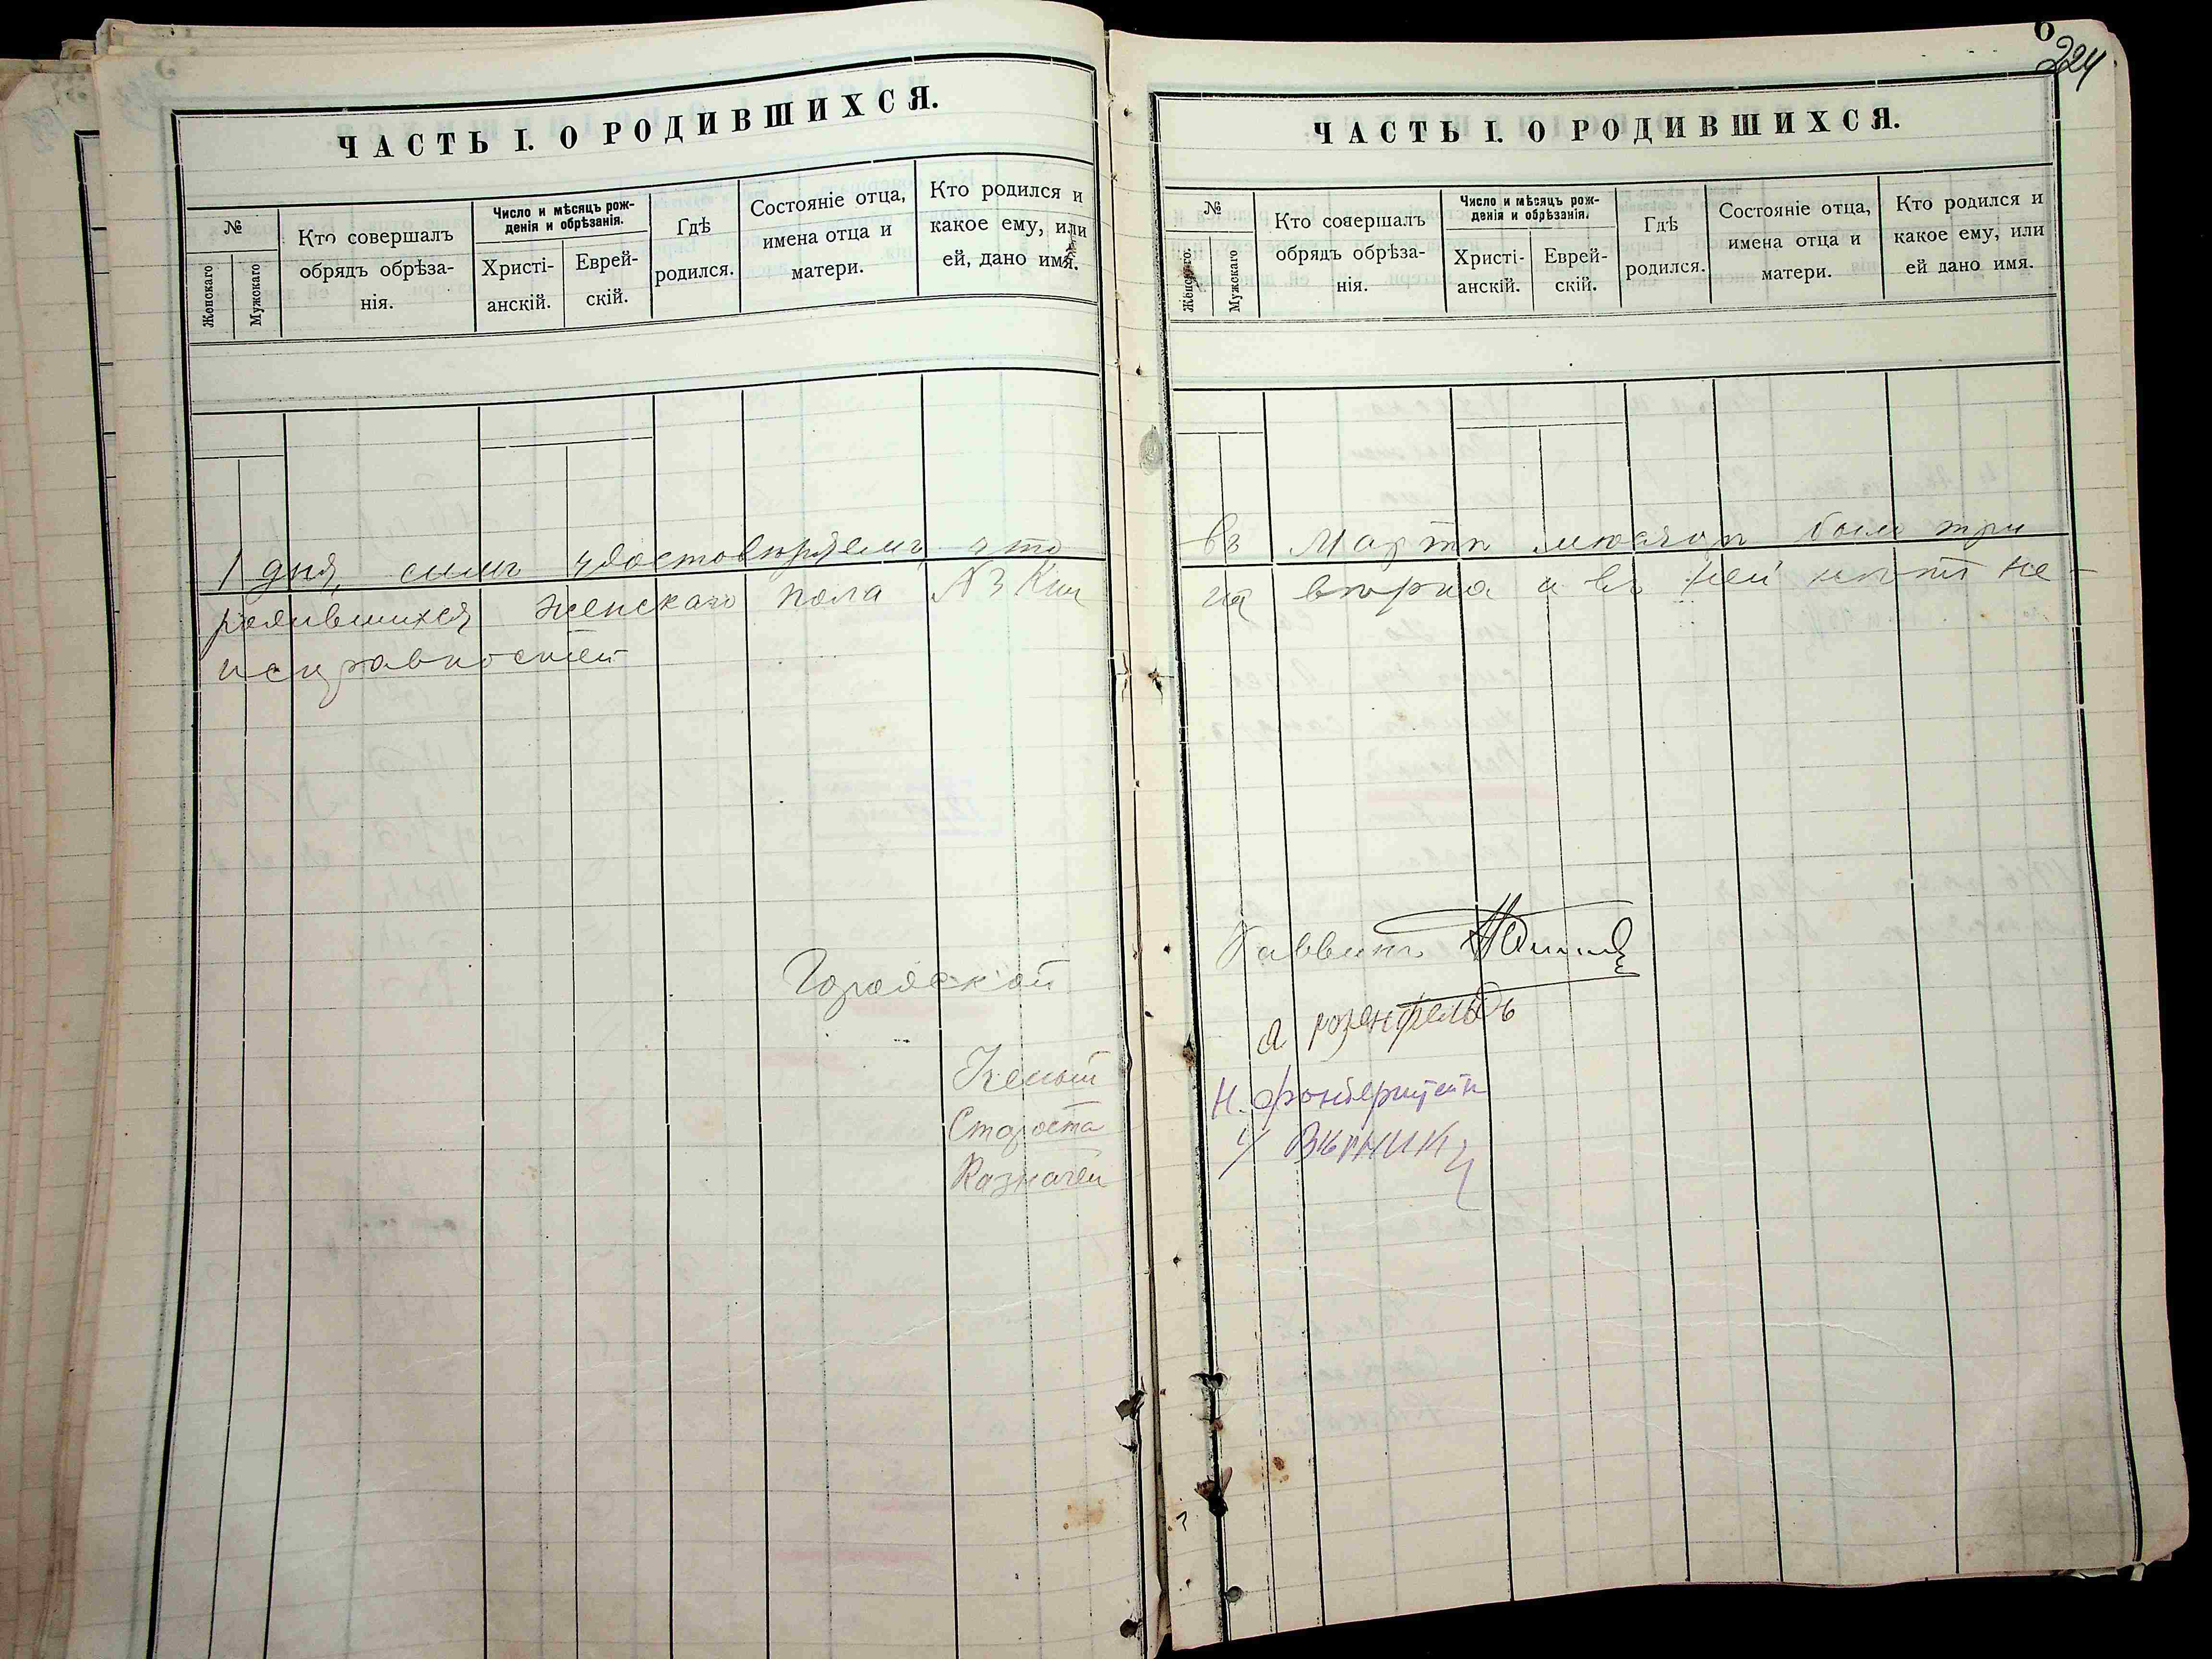 ЧАСТЬ I. О РОДИВШИХСЯ.
№
Женскаго
Мужскаго
Кто совершалъ
обрядъ обрѣза-
нія.
Число и мѣсяцъ рож-
денія и обрѣзанія.
Христі-
анскій.
Еврей-
скій.
Гдѣ
родился.
Состояніе отца,
имена отца и
матери.
Кто родился и
какое ему, или
ей, дано имя.
1 дня, симъ удостовѣряемъ что
родившихся женскаго пола №3 Кни
исправностей
Городской
Ученый
Староста
Казначей
6
224
ЧАСТЬ I. О РОДИВШИХСЯ.
№
Женскаго.
Мужскаго
Кто совершалъ
обрядъ обрѣза-
нія.
Число и мѣсяцъ рож-
денія и обрѣзанія.
Христі-
анскій.
Еврей-
скій.
Гдѣ
родился.
Состояніе отца,
имена отца и
матери.
Кто родился и
какое ему, или
ей дано имя.
въ Мартѣ мѣсяцѣ было три
га вѣрна и въ ней нѣтъ не-
Раввинъ
А розенфельдъ
Н.